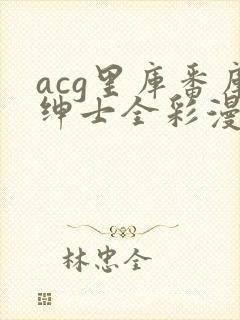 acg里库番库
绅士全彩漫
林忠全